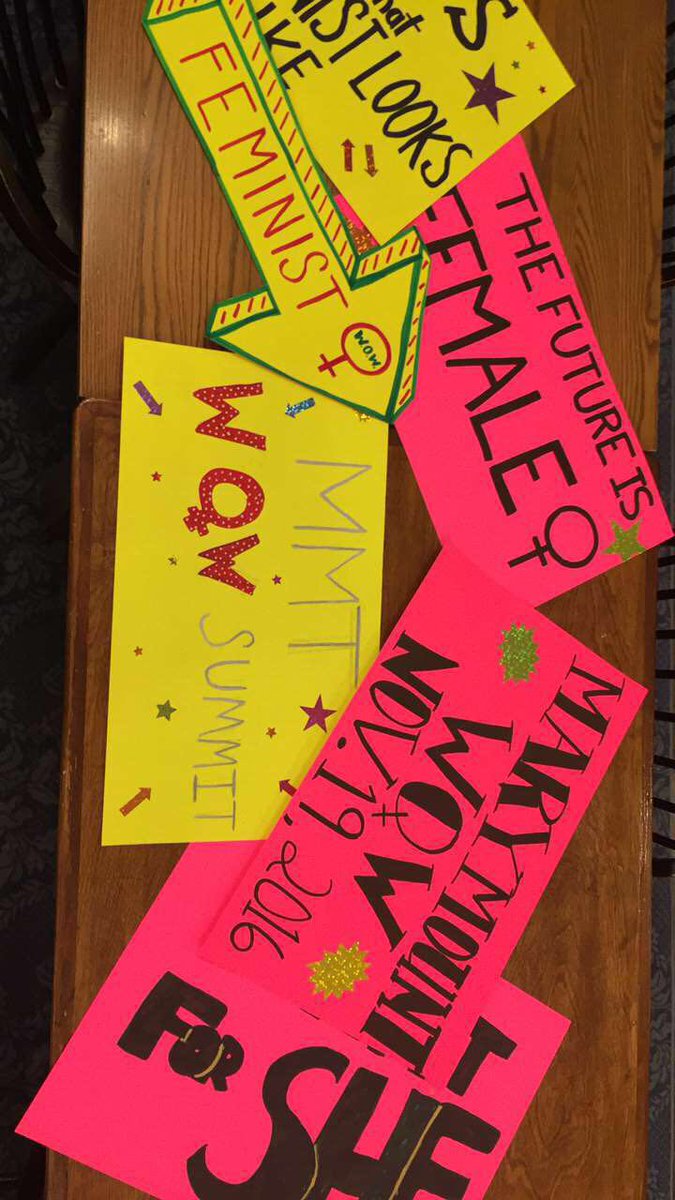 S
hat
NIST LOOKS
IKE
FEMINIST
W.O.W.
THE FUTURE IS
FEMALE
MMT
WOW SUMMIT
MARYMOUNT
WOW
NOV. 19, 2016
T
FOR SHE